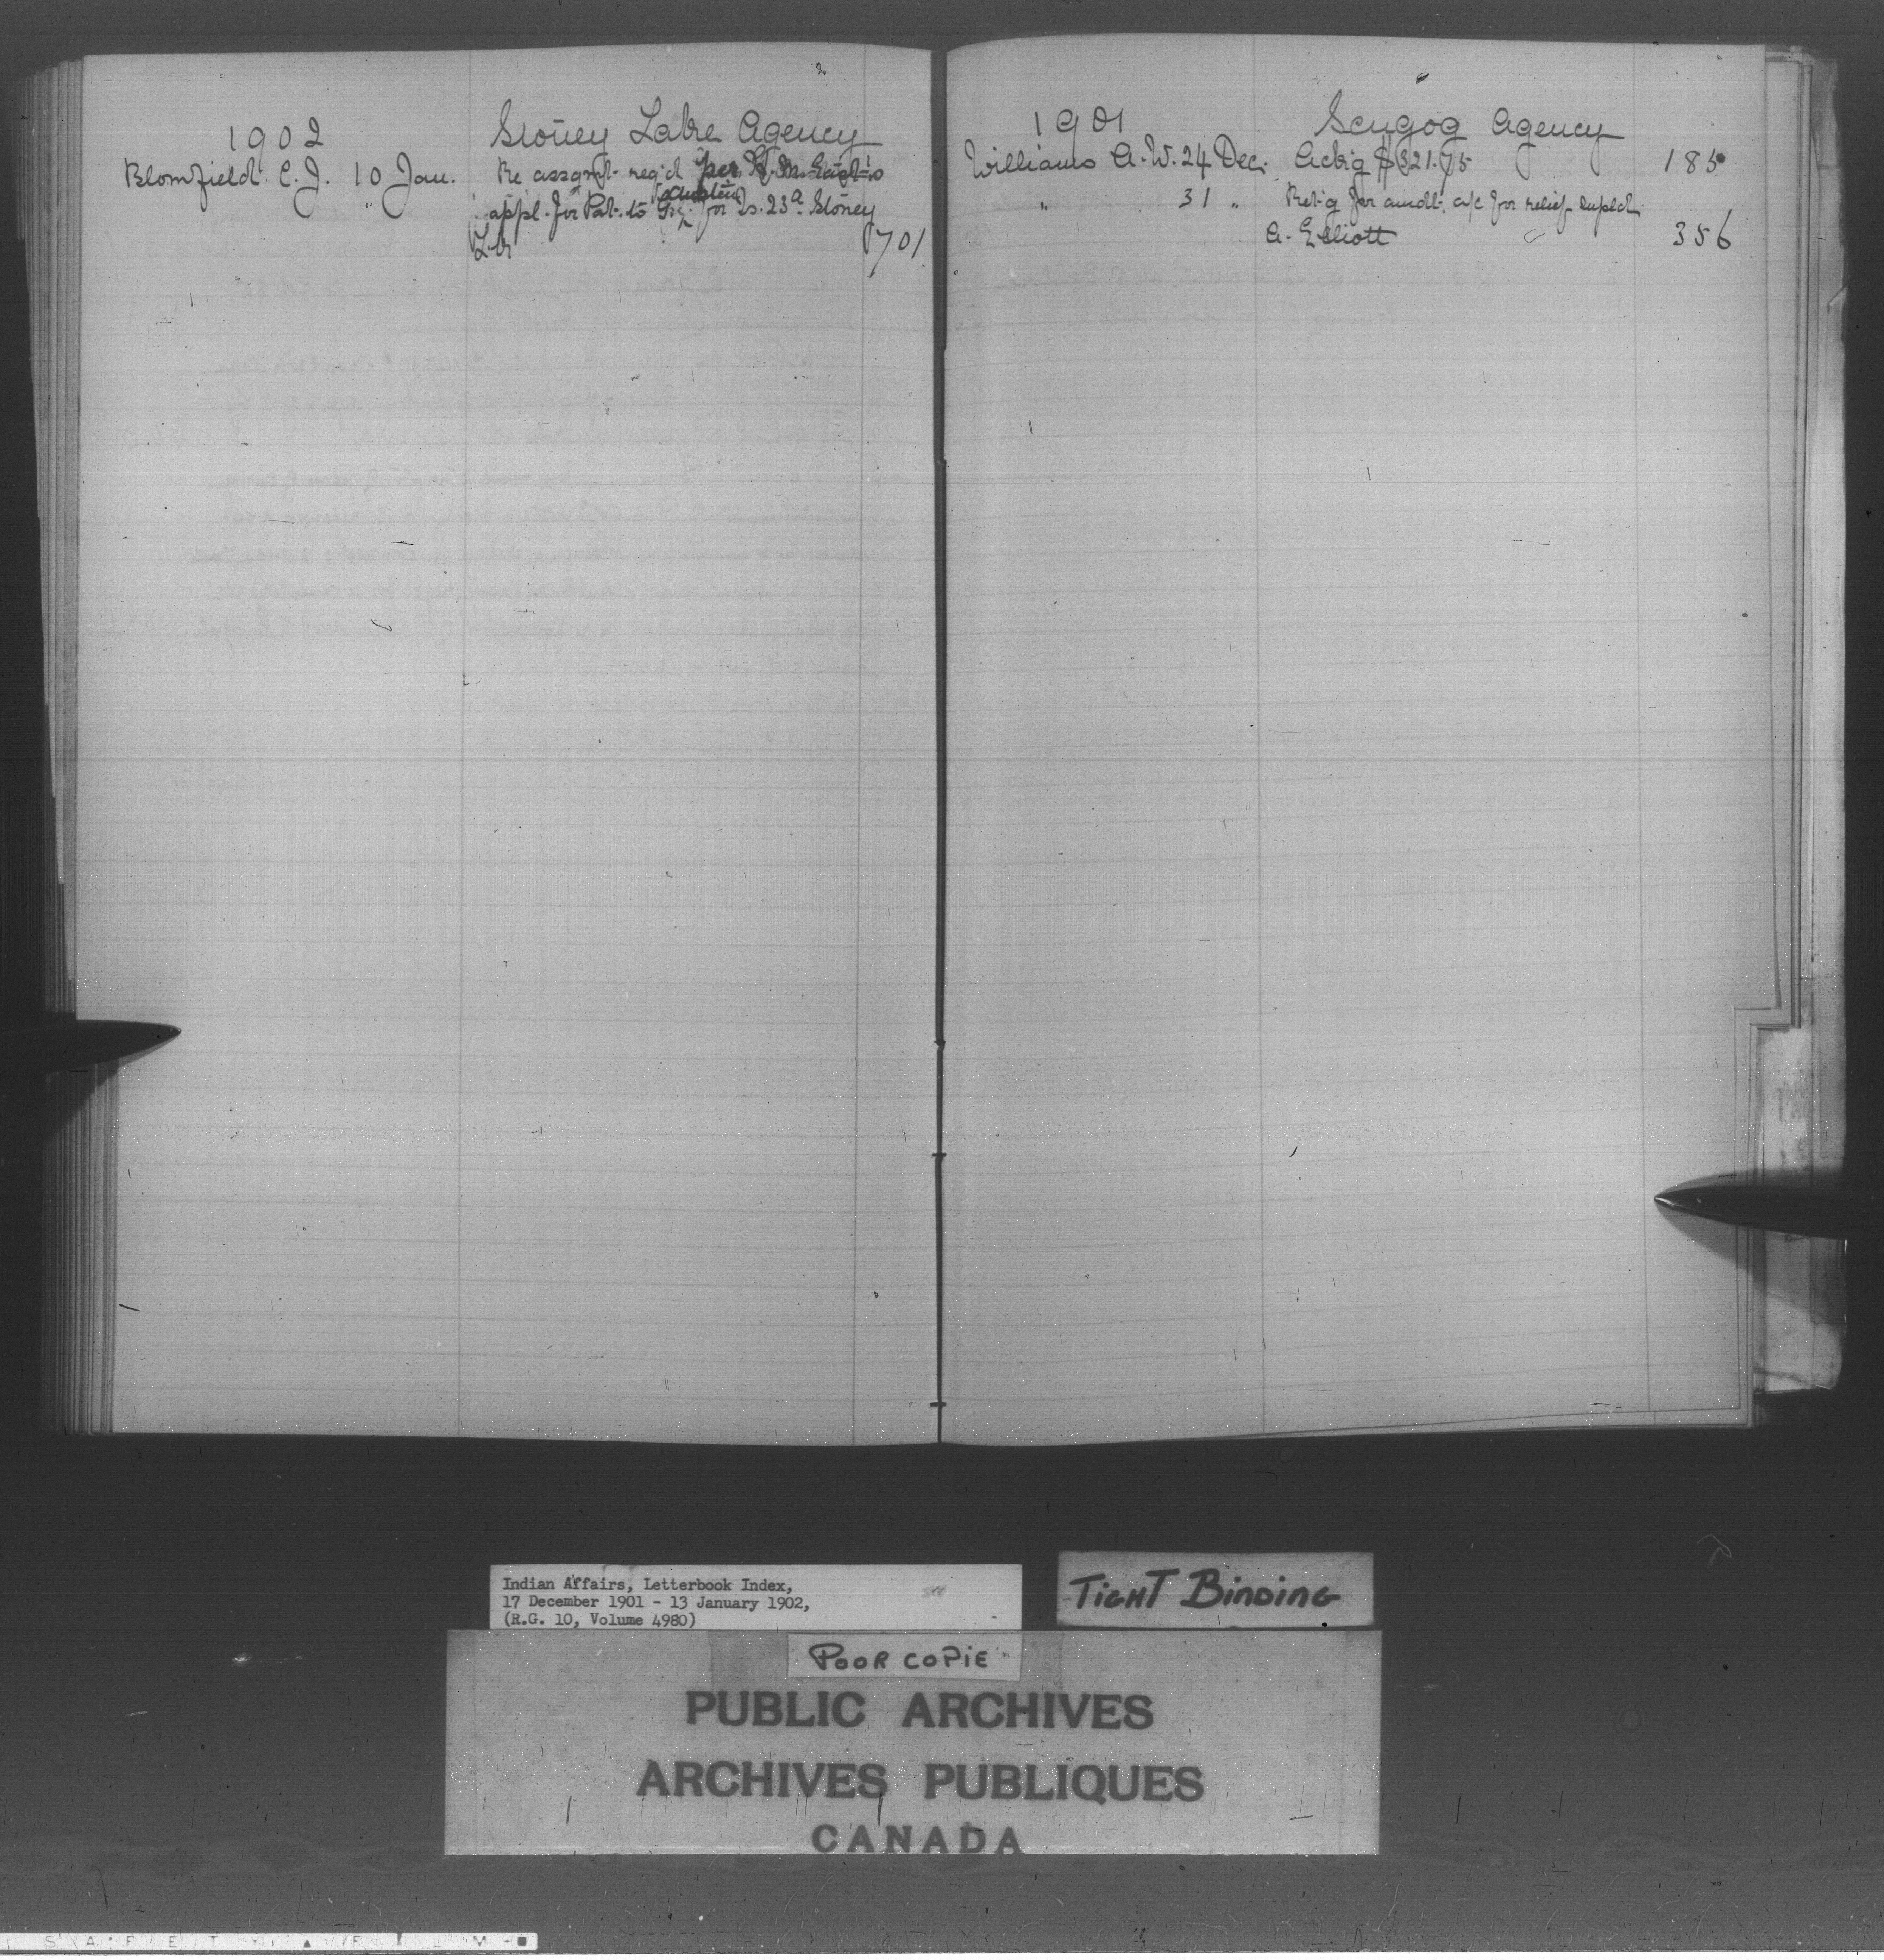 1902 Stoney Lake Agency
Blomfield C. J. 10 Jan. Re assgnt. req'd per
appl. for Pat. to for Is. 23a Stoney
Lk 701
1901 Scugog Agency
Williams A. W. 24 Dec. Ackig $321.75 185
" 31 " Ret'g for amdt. a/c for relief supld
A. Elliott 356
Indian Affairs, Letterbook Index,
17 December 1901 - 13 January 1902,
(R.G. 10, Volume 4980)
TIGHT BINDING
POOR COPIE
PUBLIC ARCHIVES
ARCHIVES PUBLIQUES
CANADA
SAFETY FILM